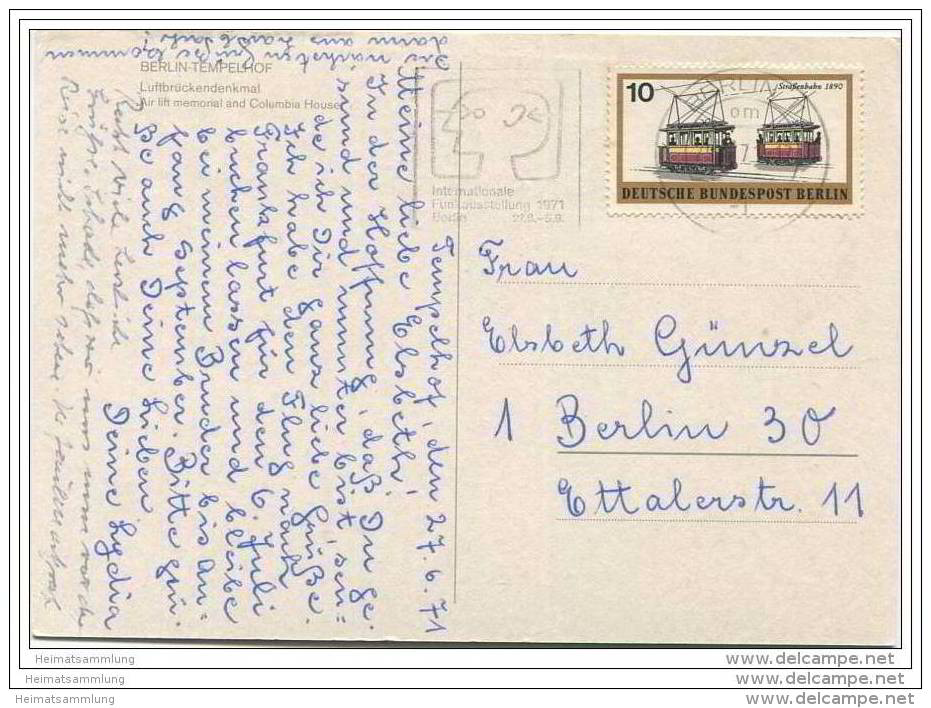 BERLIN-TEMPELHOF
Luftbrückendenkmal
Air lift memorial and Columbia House
Internationale
Funkausstellung 1971
Berlin 27.8.-5.9.
BERLIN
10
Straßenbahn 1890
DEUTSCHE BUNDESPOST BERLIN
Frau
Elsbeth Günzel
1 Berlin 30
Ettalerstr. 11
Tempelhof, den 27.6.71
Meine liebe Elsbeth!
In der Hoffnung, daß Du ge-
sund und munter bist, sen-
de ich Dir ganz liebe Grüße.
Ich habe den Flug nach
Frankfurt für den 6. Juli
buchen lassen und bleibe
bei meinem Bruder bis An-
fang September. Bitte grü-
ße auch Deine Lieben
Deine Lydia
Die nächsten Grüße kommen
dann aus
Recht viele herzliche
Grüße. Schade, daß wir uns nun vor der
Reise nicht mehr sehen.
Heimatsammlung
Heimatsammlung
Heimatsammlung
www.delcampe.net
www.delcampe.net
www.delcampe.net